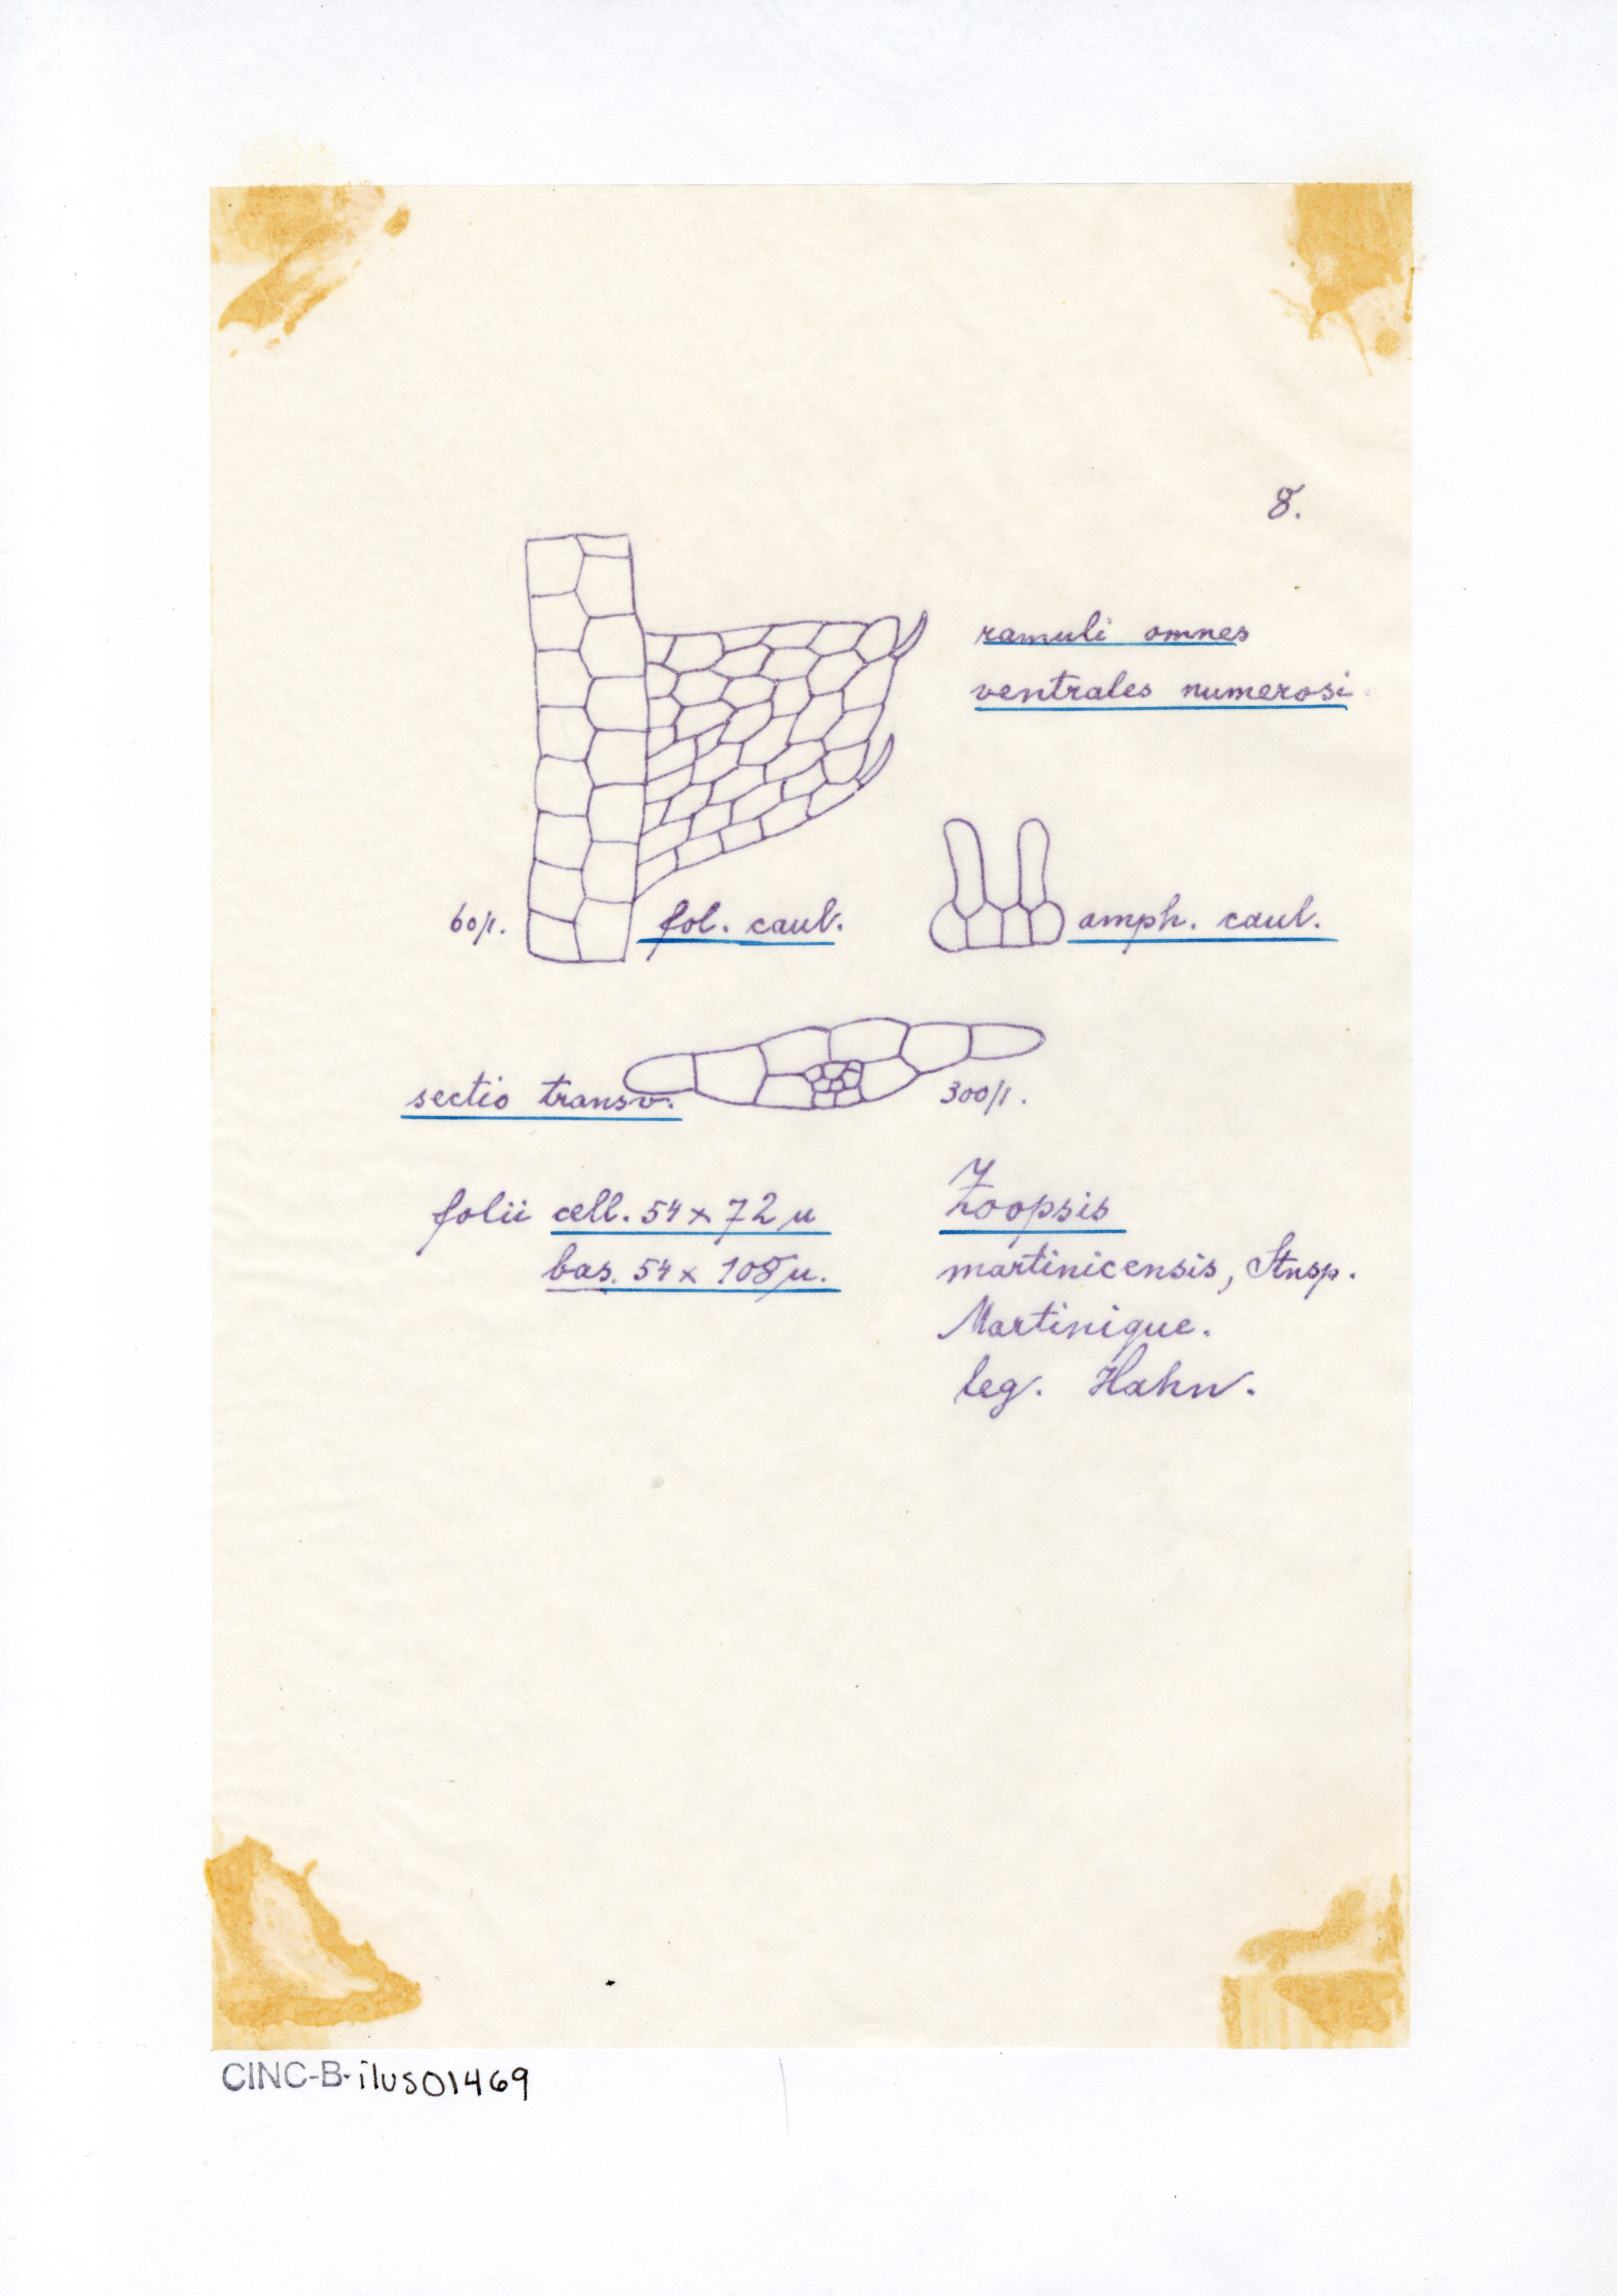 8.
ramuli omnes
ventrales numerosi
60/1. fol. caul. amph. caul.
sectio transv. 300/1.
folii cell. 54 x 72 µ
bas. 54 x 108 µ.
Zoopsis
martinicensis, Stnsp.
Martinique.
leg. Hahn.
CINC-B-ilus01469